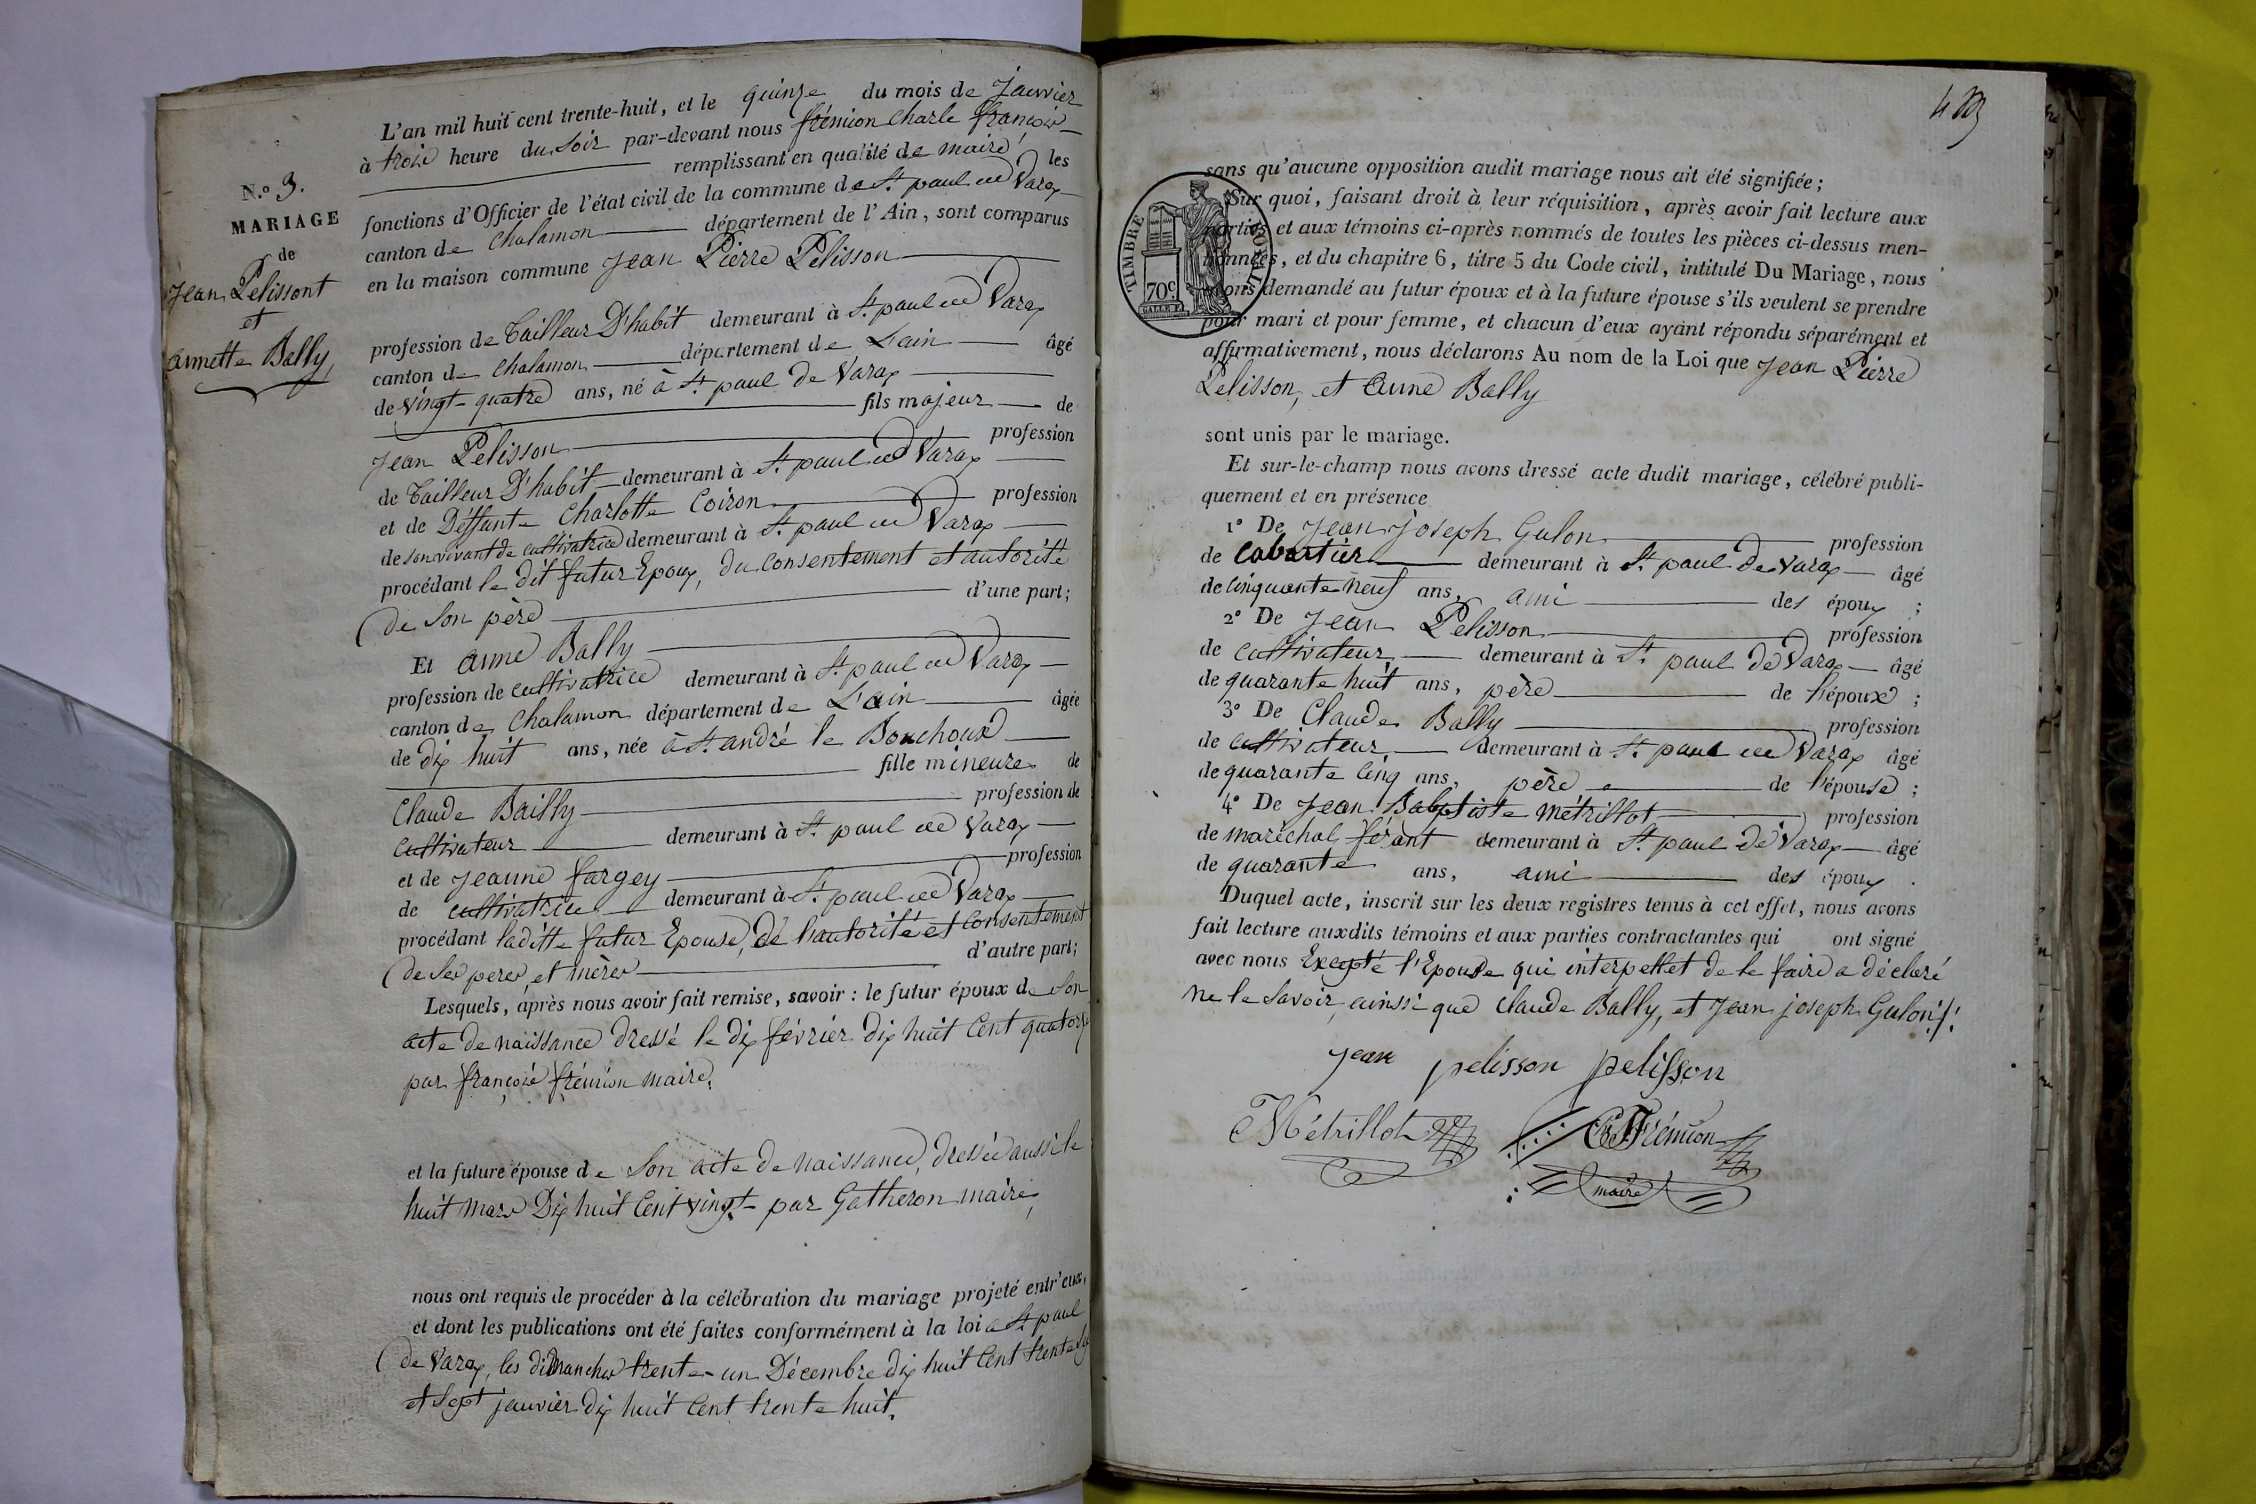 N.° 3.
MARIAGE
de
Jean Pelissont
et
annette Bally,
L'an mil huit cent trente-huit, et le quinze du mois de Janvier
à trois heure du Soir par-devant nous frémion Charle françois
remplissant en qualité de maire, les
fonctions d'Officier de l'état civil de la commune de St. paul de Varax
canton de Chalamon département de l'Ain, sont comparus
en la maison commune Jean Pierre Pelisson
profession de Tailleur D'habit demeurant à St. paul de Varax
canton de Chalamon département de L'ain âgé
de vingt-quatre ans, né à St. paul de Varax
fils majeur de
Jean Pelisson profession
de Tailleur D'habit demeurant à St. paul de Varax
et de Déffunte Charlotte Coiron profession
de son vivant de cultivatrice demeurant à St. paul de Varax
procédant le dit futur Epoux, du Consentement et autorité
de Son père d'une part;
Et anne Bally
profession de cultivatrice demeurant à St. paul de Varax
canton de Chalamon département de L'ain âgée
de dix huit ans, née à St. andré le Bouchoux
fille mineure de
Claude Bailly profession de
cultivateur demeurant à St. paul de Varax
et de Jeanne fargey profession
de cultivatrice demeurant à St. paul de Varax
procédant laditte futur Epouse, de l'autorité et Consentement
de Ses peres et mères d'autre part;
Lesquels, après nous avoir fait remise, savoir : le futur époux de Son
acte de naissance dressé le dix février dix huit Cent quatorze
par françois frémion maire,
et la future épouse de Son acte de naissance, dressée aussi le
huit mars Dix huit Cent vingt par Gatheron maire,
nous ont requis de procéder à la célébration du mariage projeté entr'eux,
et dont les publications ont été faites conformément à la loi a St. paul
de Varax, les dimanches trente-un Décembre dix huit Cent trente
et Sept janvier dix huit Cent trente huit.
TIMBRE ROYAL
70c.
sans qu'aucune opposition audit mariage nous ait été signifiée ;
Sur quoi, faisant droit à leur réquisition, après avoir fait lecture aux
parties et aux témoins ci-après nommés de toutes les pièces ci-dessus men-
tionnées, et du chapitre 6, titre 5 du Code civil, intitulé Du Mariage, nous
avons demandé au futur époux et à la future épouse s'ils veulent se prendre
pour mari et pour femme, et chacun d'eux ayant répondu séparément et
affirmativement, nous déclarons Au nom de la Loi que Jean Pierre
Pelisson, et Anne Bally
sont unis par le mariage.
Et sur-le-champ nous avons dressé acte dudit mariage, célébré publi-
quement et en présence
1° De Jean joseph Gulon profession
de Cabartier demeurant à St. paul de Varax âgé
de cinquante neuf ans, ami des époux ;
2° De Jean Pelisson profession
de cultivateur demeurant à St. paul de Varax âgé
de quarante huit ans, père de l'époux ;
3° De Claude Bally profession
de cultivateur demeurant à St. paul de Varax âgé
de quarante Cinq ans, père de l'épouse ;
4° De Jean Babptiste Métrillot profession
de maréchal ferant demeurant à St. paul de Varax âgé
de quarante ans, ami des époux .
Duquel acte, inscrit sur les deux registres tenus à cet effet, nous avons
fait lecture auxdits témoins et aux parties contractantes qui ont signé
avec nous Excepté l'Epouse qui interpellet de le faire a déclaré
ne le Savoir, ainssi que Claude Bally, et Jean joseph Gulon
jean pelisson pelisson
Métrillot Ch. Frémion
maire